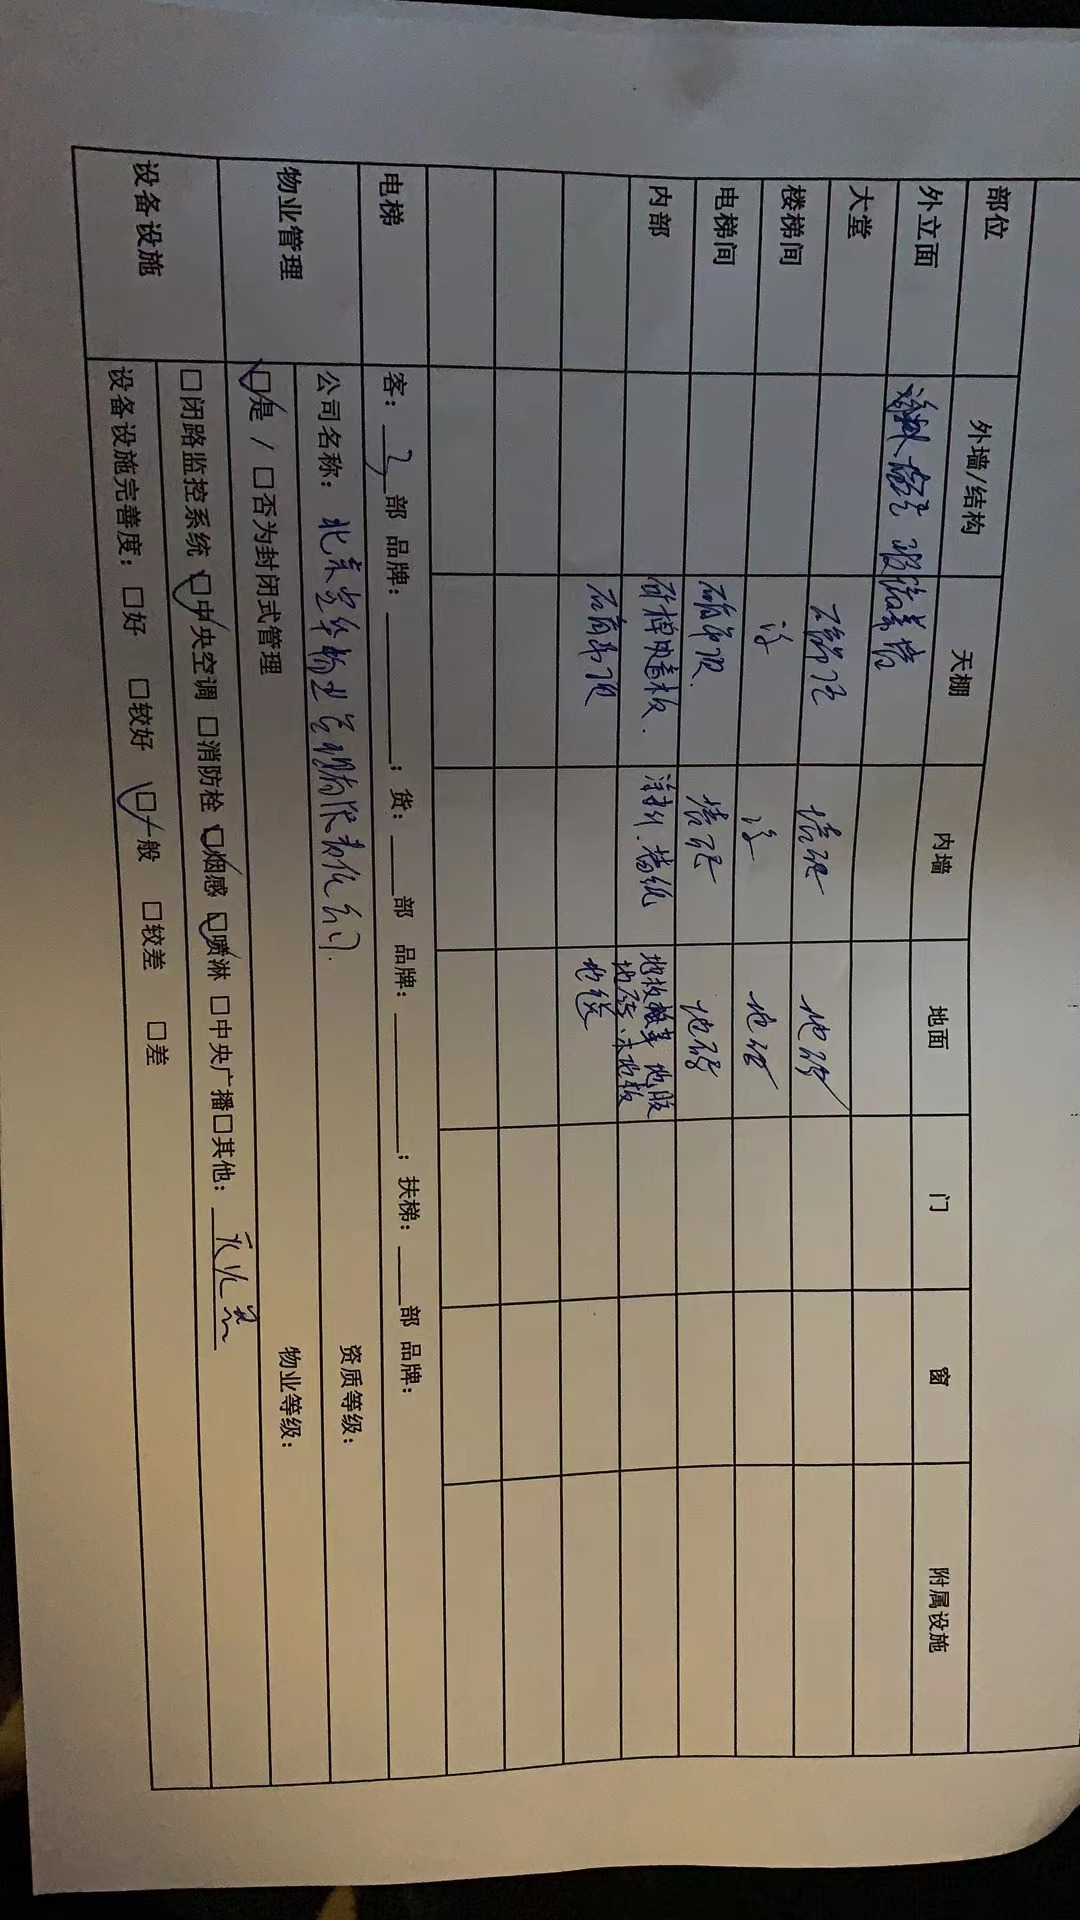 部位 外墙/结构 天棚 内墙 地面 门 窗 附属设施
外立面 涂料 玻璃幕墙
大堂 墙砖 地砖
楼梯间
电梯间 石膏吊顶 墙砖 地砖
内部 矿棉吸音板 涂料、墙纸 地胶
地砖、木地板
石膏吊顶 地毯
电梯 客：2部 品牌： ；货： 部 品牌： ；扶梯： 部 品牌：
物业管理 公司名称：北京 物业管理有限责任公司 资质等级：
☑是 / □否为封闭式管理 物业等级：
设备设施 □闭路监控系统 ☑中央空调 □消防栓 ☑烟感 ☑喷淋 □中央广播□其他：
设备设施完善度：□好 □较好 ☑一般 □较差 □差